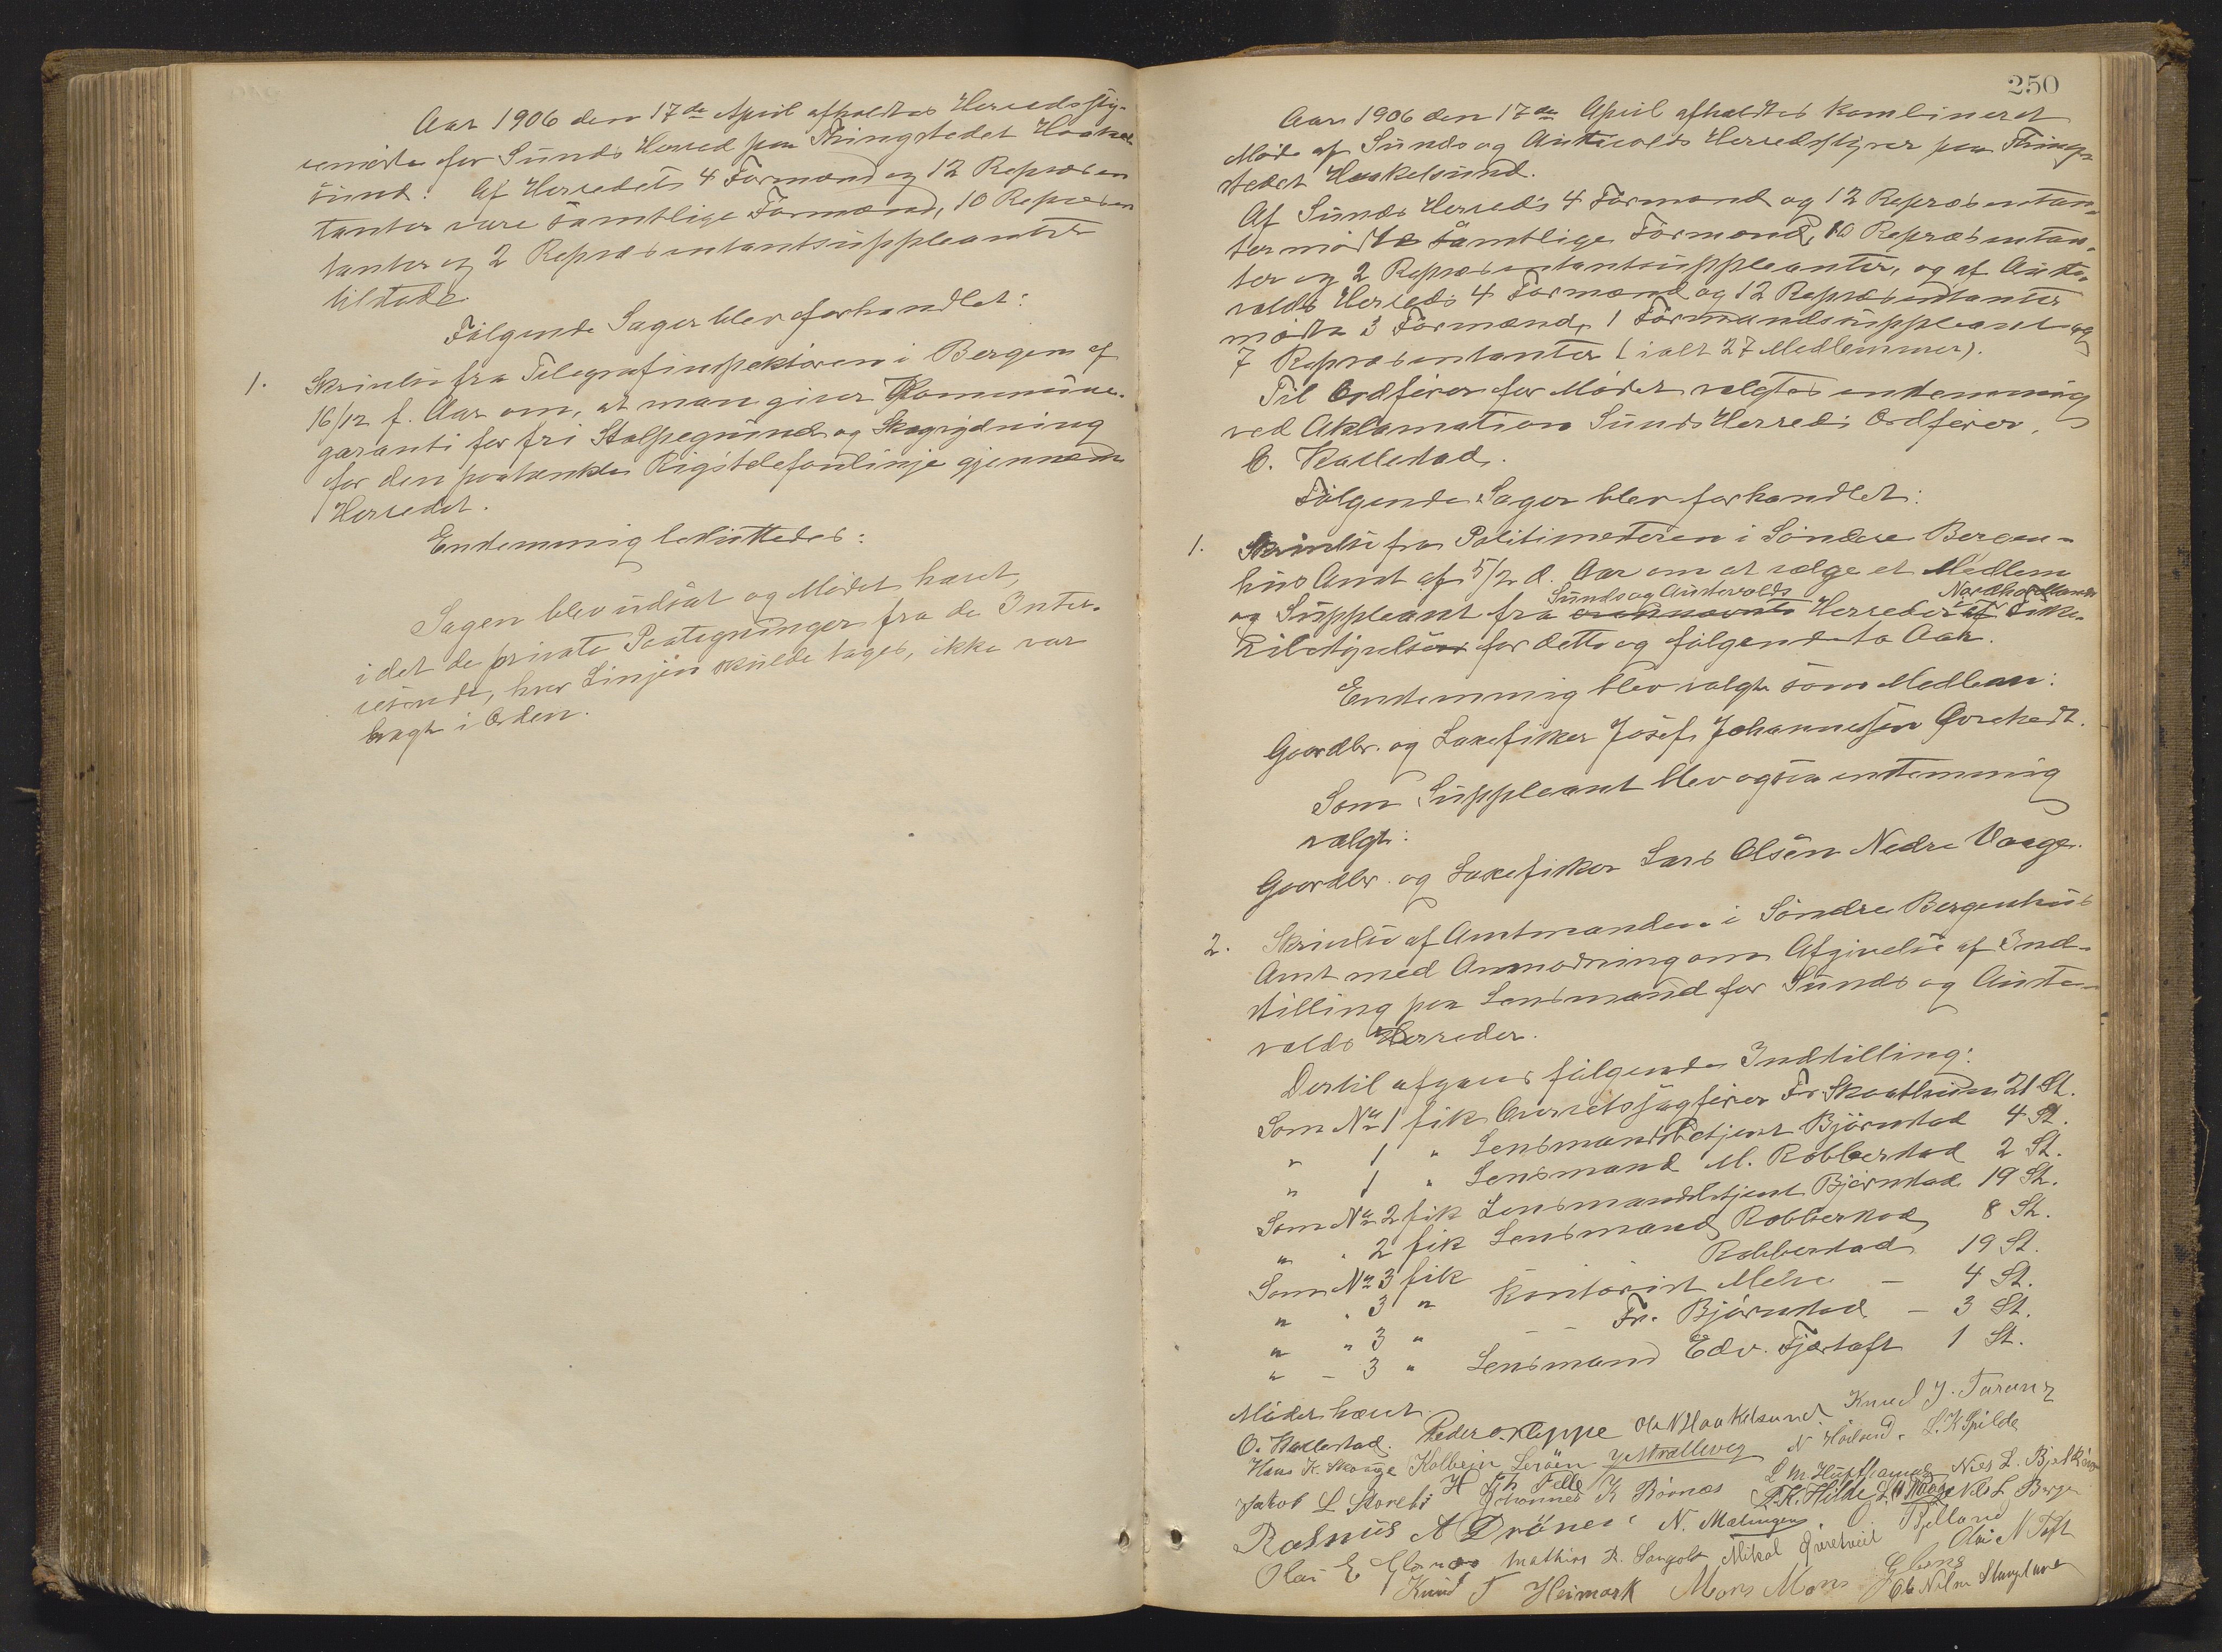 Aar 1906 den 17de April afholdtes Herredssty-
remøde for Sunds Herred paa Thingstedet Haakel-
sund. Af Herredets 4 Formænd og 12 Repræsen
tanter vare samtlige Formænd, 10 Repræsen
tanter og 2 Repræsentantsuppleanter
tilstede.
Følgende Sager blev forhandlet:
1. Skrivelse fra Telegrafinspektøren i Bergen af
16/12 f. Aar om, at man giver Kommune-
garanti for fri Stolpegrund og Skogrydning
for den paatænkte Rigstelefonlinje gjennem
Herredet.
Enstemmig besluttedes:
Sagen blev udsat og Mødet hævet,
idet de private Paategninger fra de Inter-
resserede, hvor Linjen skulde tages, ikke var
bragt i Orden.
250
Aar 1906 den 17de April afholdtes kombineret
Møde af Sunds og Austevolds Herredsstyrer paa Thing-
stedet Haakelsund.
Af Sunds Herreds 4 Formænd og 12 Repræsentan-
ter mødte samtlige Formænd, 10 Repræsentan-
ter og 2 Repræsentantsuppleanter, og af Auste-
volds Herreds 4 Formænd og 12 Repræsentanter
mødte 3 Formænd, 1 Formandssuppleant og
7 Repræsentanter (ialt 27 Medlemmer).
Til Ordfører for Mødet valgtes enstemmig
ved Aklamation Sunds Herreds Ordfører,
O. Kallestad.
Følgende Sager blev forhandlet:
1. Skrivelse fra Politimesteren i Søndre Bergen-
hus Amt af 5/2 d. Aar om at vælge et Medlem
Sunds og Austevolds Nordhordlands
og Suppleant fra ovennævnte Herreder af Fiske-
ribestyrelsen for dette og følgende to Aar.
Enstemmig blev valgt som Medlem:
Gaardbr. og Laxefisker Josef Johannessen Østrehedt.
Som Suppleant blev ogsaa enstemmig
valgt:
Gaardbr. og Laxefisker Lars Olsen Nedre Vaage.
2. Skrivelse af Amtmanden i Søndre Bergenhus
Amt med Anmodning om Afgivelse af Ind-
stilling paa Lensmand for Sunds og Auste-
volds Herreder.
Dertil afgaves følgende Indstilling:
Som No 1 fik Overretssagfører Fr. Skaatheim 21 St.
" 1 " Lensmandsbetjent Bjørnstad 4 St.
" 1 " Lensmand M. Robberstad 2 St.
Som No 2 fik Lensmandsbetjent Bjørnstad 19 St.
" " 2 fik Lensmand Robberstad 8 St.
Som No 3 fik Robberstad 19 St.
" " 3 " Kontorist Melve – 4 St.
" " 3 " – – Fr. Bjørnstad – 3 St.
" – 3 " Lensmand Edv. Fjærtoft 1 St.
Mødet hævet.
O. Kallestad. Peder O. Kleppe Ole N Haakelsund Knud J. Taranger
Hans K. Skaage Kolbein Lerøen N. L. K Spilde
Jakob L Storebø H Th Telle Johannes K Børnæs L M Hufthamar Nils L. Bjelkarøen
Rasmus A Drønen N. Malingen. P. K. Hilde L. O Vaage Nils L Berge
Olai E Glesnæs Mathias R. Sangolt Mikal Ø. Tjelland Olai N Toft
Knud T Heimark Mons Mons Glesnæs